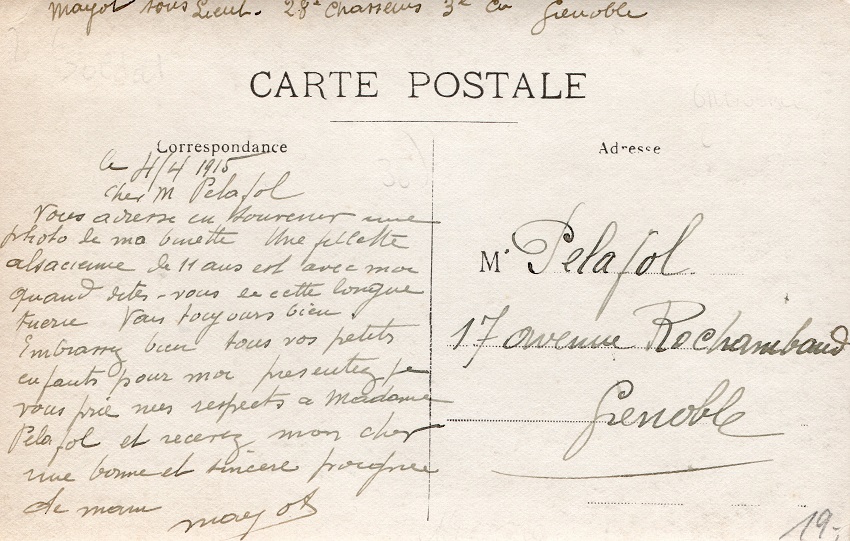 Mayot sous Lieut. 28e Chasseurs 3e Cie Grenoble
CARTE POSTALE
Correspondance
Le 4/4 1915
Cher M Pelafol
Vous adresse en souvenir une
photo de ma binette Une fillette
alsacienne de 11 ans est avec moi
quand dites-vous de cette longue
tuerie Vais toujours bien
Embrassez bien tous vos petits
enfants pour moi presentez je
vous prie mes respects a Madame
Pelafol et recevez mon cher
une bonne et sincere poignee
de main
Mayot
Adresse
Mr Pelafol
17 avenue Rochambaud
Grenoble
19-